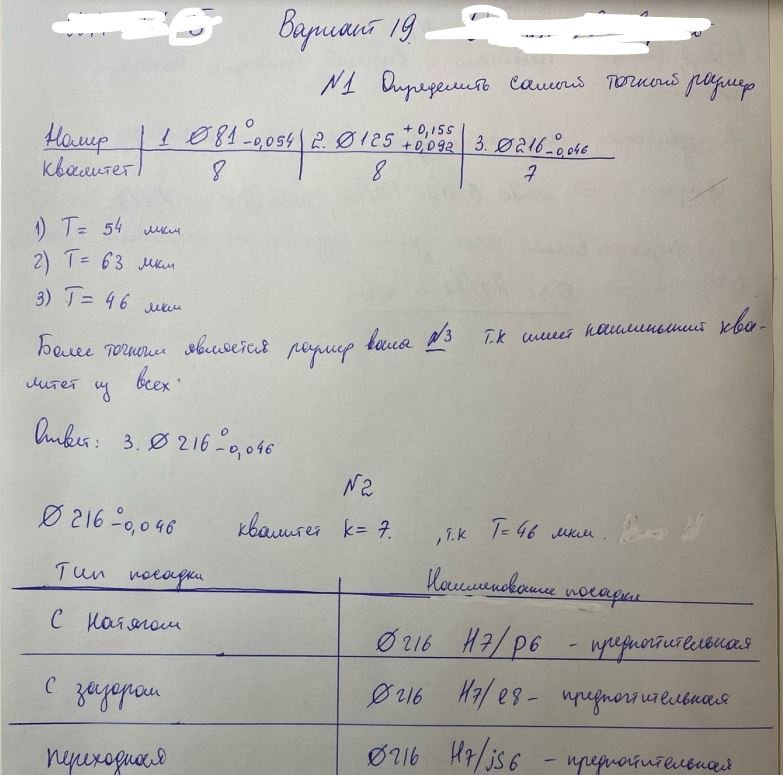 Вариант 19.
N1 Определить самый точный размер
Номер | 1 Ø81 0 -0,054 | 2. Ø125 +0,155 +0,092 | 3. Ø216 0 -0,046
Квалитет | 8 | 8 | 7
1) T = 54 мкм
2) T = 63 мкм
3) T = 46 мкм
Более точным является размер вала N3 т.к имеет наименьший ква-
литет из всех.
Ответ: 3. Ø 216 0 -0,046
N2
Ø 216 0 -0,046 квалитет k= 7. ,т.к T= 46 мкм.
Тип посадки | Наименование посадки
С натягом | Ø216 H7/p6 - предпочтительная
С зазором | Ø216 H7/e8 - предпочтительная
переходная | Ø216 H7/js6 - предпочтительная